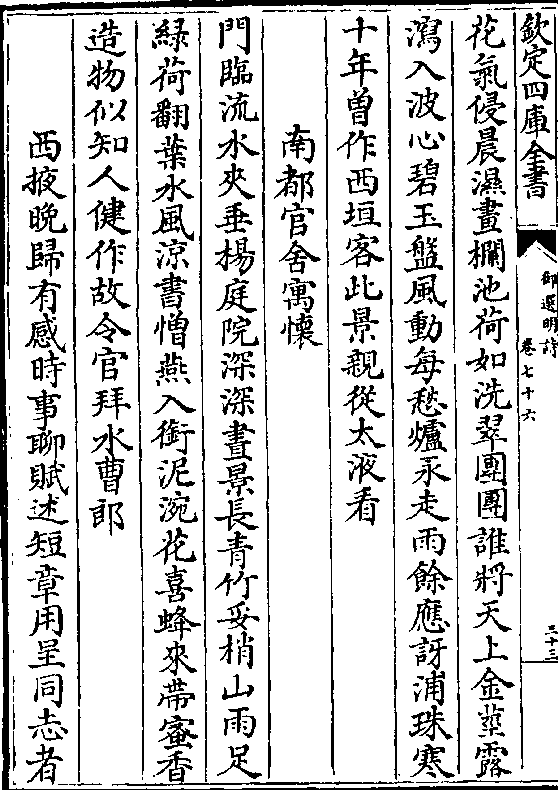 欽定四庫全書
御選明詩
卷七十六
三十三
花氣侵晨濕畫欄池荷如洗翠團團誰將天上金莖露
瀉入波心碧玉盤風動每愁爐汞走雨餘應訝浦珠寒
十年曾作西垣客此景親從太液看
南都官舍寓懷
門臨流水夾垂楊庭院深深晝景長青竹妥梢山雨足
綠荷翻葉水風涼書憎燕入銜泥涴花喜蜂來帶蜜香
造物似知人健作故令官拜水曹郎
西掖晚歸有感時事聊賦述短章用呈同志者